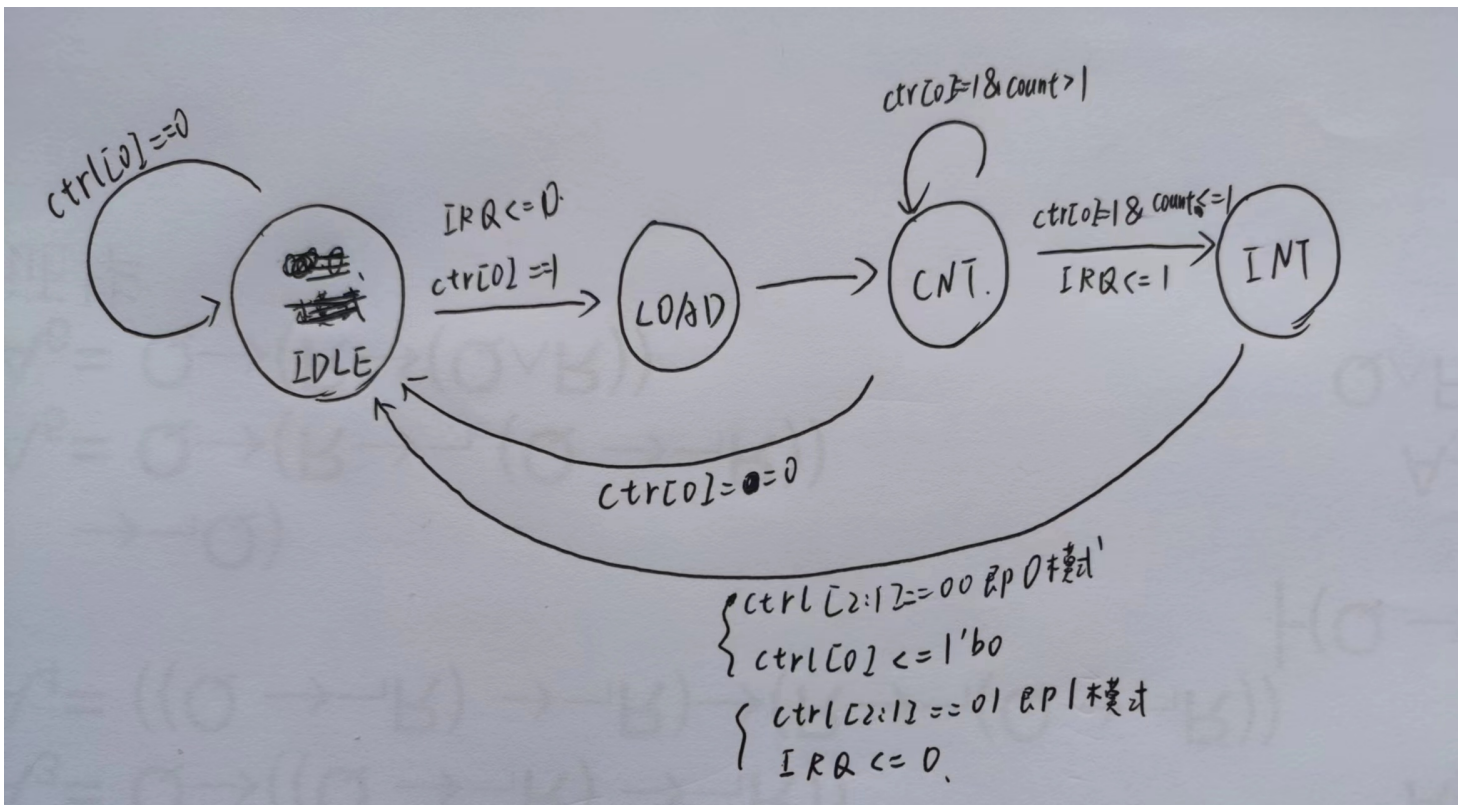 ctrl[0]==0
IDLE
IRQ<=0.
ctr[0]==1
LOAD
ctr[0]=1&count>1
CNT.
ctr[0]=1& count<=1
IRQ<=1
INT
ctr[0]==0
ctrl[2:1]==00即0模式
ctrl[0]<=1'b0
ctrl[2:1]==01即1模式
IRQ<=0.